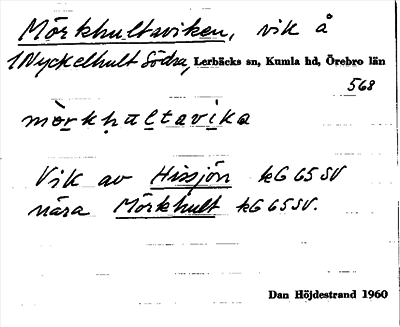 Mörkhultaviken, vik å
1 Nyckelhult Södra, Lerbäcks sn, Kumla hd, Örebro län
568
mòrkhaltavika
Vik av Hissjön kG 65 SV
nära Mörkhult kG 65 SV.
Dan Höjdestrand 1960